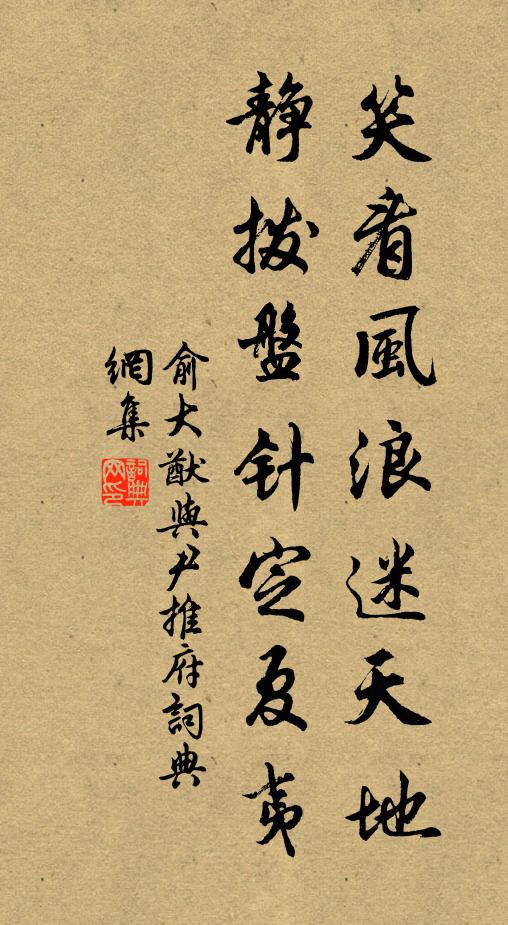 笑看風浪迷天地
静拨盤针定夏夷
俞大猷與尹推府詞典
網集
詞典網印